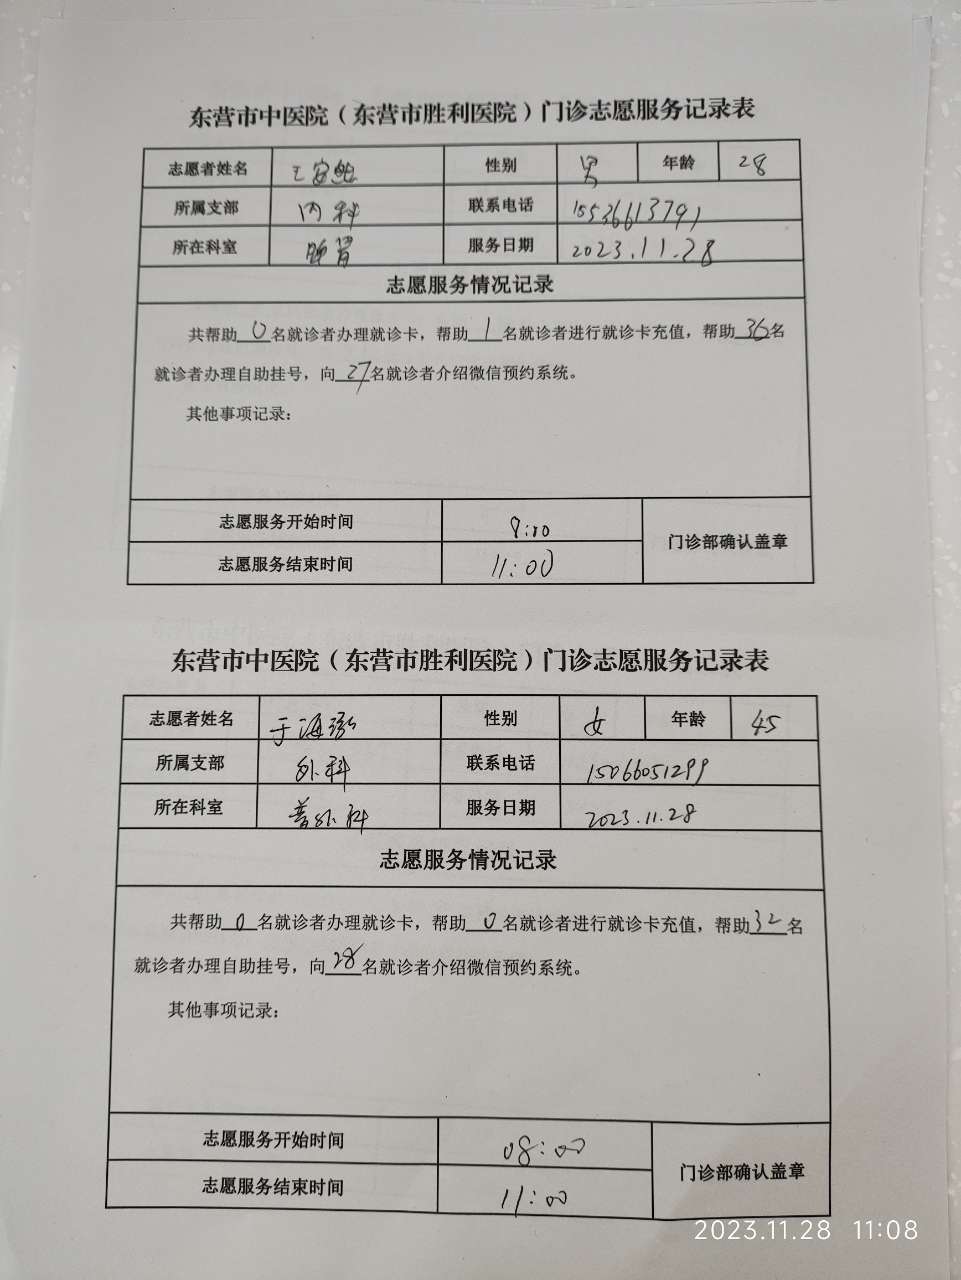 东营市中医院（东营市胜利医院）门诊志愿服务记录表
志愿者姓名 王 性别 男 年龄 28
所属支部 内科 联系电话 15536613791
所在科室 服务日期 2023.11.28
志愿服务情况记录
共帮助0名就诊者办理就诊卡，帮助1名就诊者进行就诊卡充值，帮助36名
就诊者办理自助挂号，向27名就诊者介绍微信预约系统。
其他事项记录：
志愿服务开始时间 8:00
门诊部确认盖章
志愿服务结束时间 11:00
东营市中医院（东营市胜利医院）门诊志愿服务记录表
志愿者姓名 于海 性别 女 年龄 45
所属支部 外科 联系电话 15066051299
所在科室 普外科 服务日期 2023.11.28
志愿服务情况记录
共帮助0名就诊者办理就诊卡，帮助0名就诊者进行就诊卡充值，帮助32名
就诊者办理自助挂号，向28名就诊者介绍微信预约系统。
其他事项记录：
志愿服务开始时间 08:00
门诊部确认盖章
志愿服务结束时间 11:00
2023.11.28 11:08